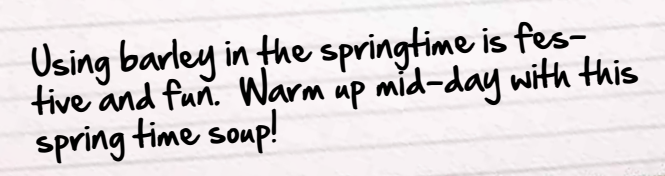 Using barley in the springtime is fes-
tive and fun.  Warm up mid-day with this
spring time soup!